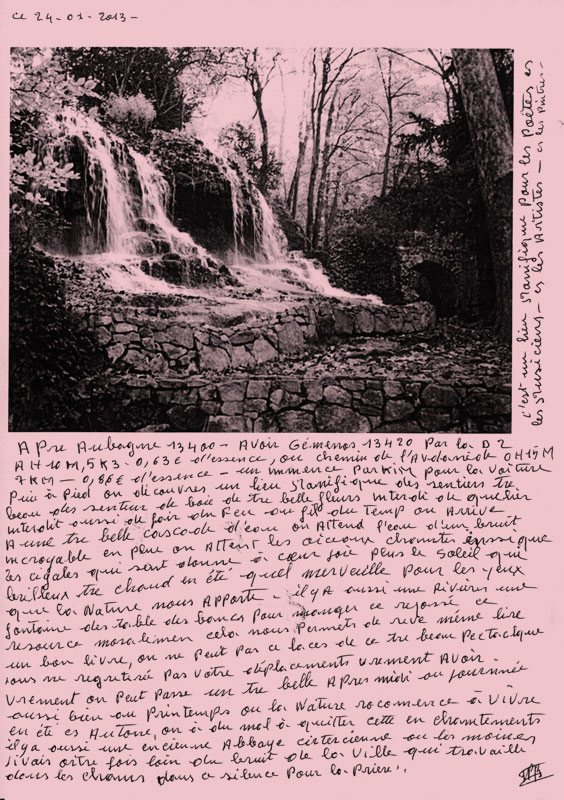 ce 24-01-2013-
c'est un lien Manifique Pour les Poëtes es
les Musiciens - es les Artistes - es les Pintres -
APre Aubagne 13400 - Avoir Gémenos 13420 Par la D2
AH10M,5K3 - 0,63€ d'essence, ou chemin de l'Avdaniède 0H15M
7KM - 0,86€ d'essence - un immence ParKin pour la voiture
Puis à Pied on découvres un lieu Manifique des sentiers tre
beau des senteur de bois de tre belle fleurs interdi de quelir
interdit aussi de fair du Feu au fil du temp on Arrive
A une tre belle cascade d'eau on Attend l'eau d'un bruit
incroyable en plus on Attent les oiceaux chamts
les cigales qui sont donne à cœur joie Plus le Soleil qui
brilleux tre chaud en été quel merveille pour les yeux
que la Nature nous APPorte - ilyA aussi une Rivière une
fontaine des table des bancs Pour manger ce reposé ce
resource moralemen cela nous Permets de reve même lire
un bon livre, on ne Peut Par ce laces de ce tre beau Pectaclque
vous ne regreteré Pas votre déplacements vrement Avoir.
vrement on Peut Passe un tre belle APres midi ou journnée
aussi bien au Printemps ou la Nature recomence à vivre
en été es Autone, on à du mal à quitter cette en chamtements
ilya aussi une encienne Abbaye cistercienne ou les moines
vivais fois loin du bruit de la Ville qui travaille
dans les chams dans ce silence Pour la Prière.